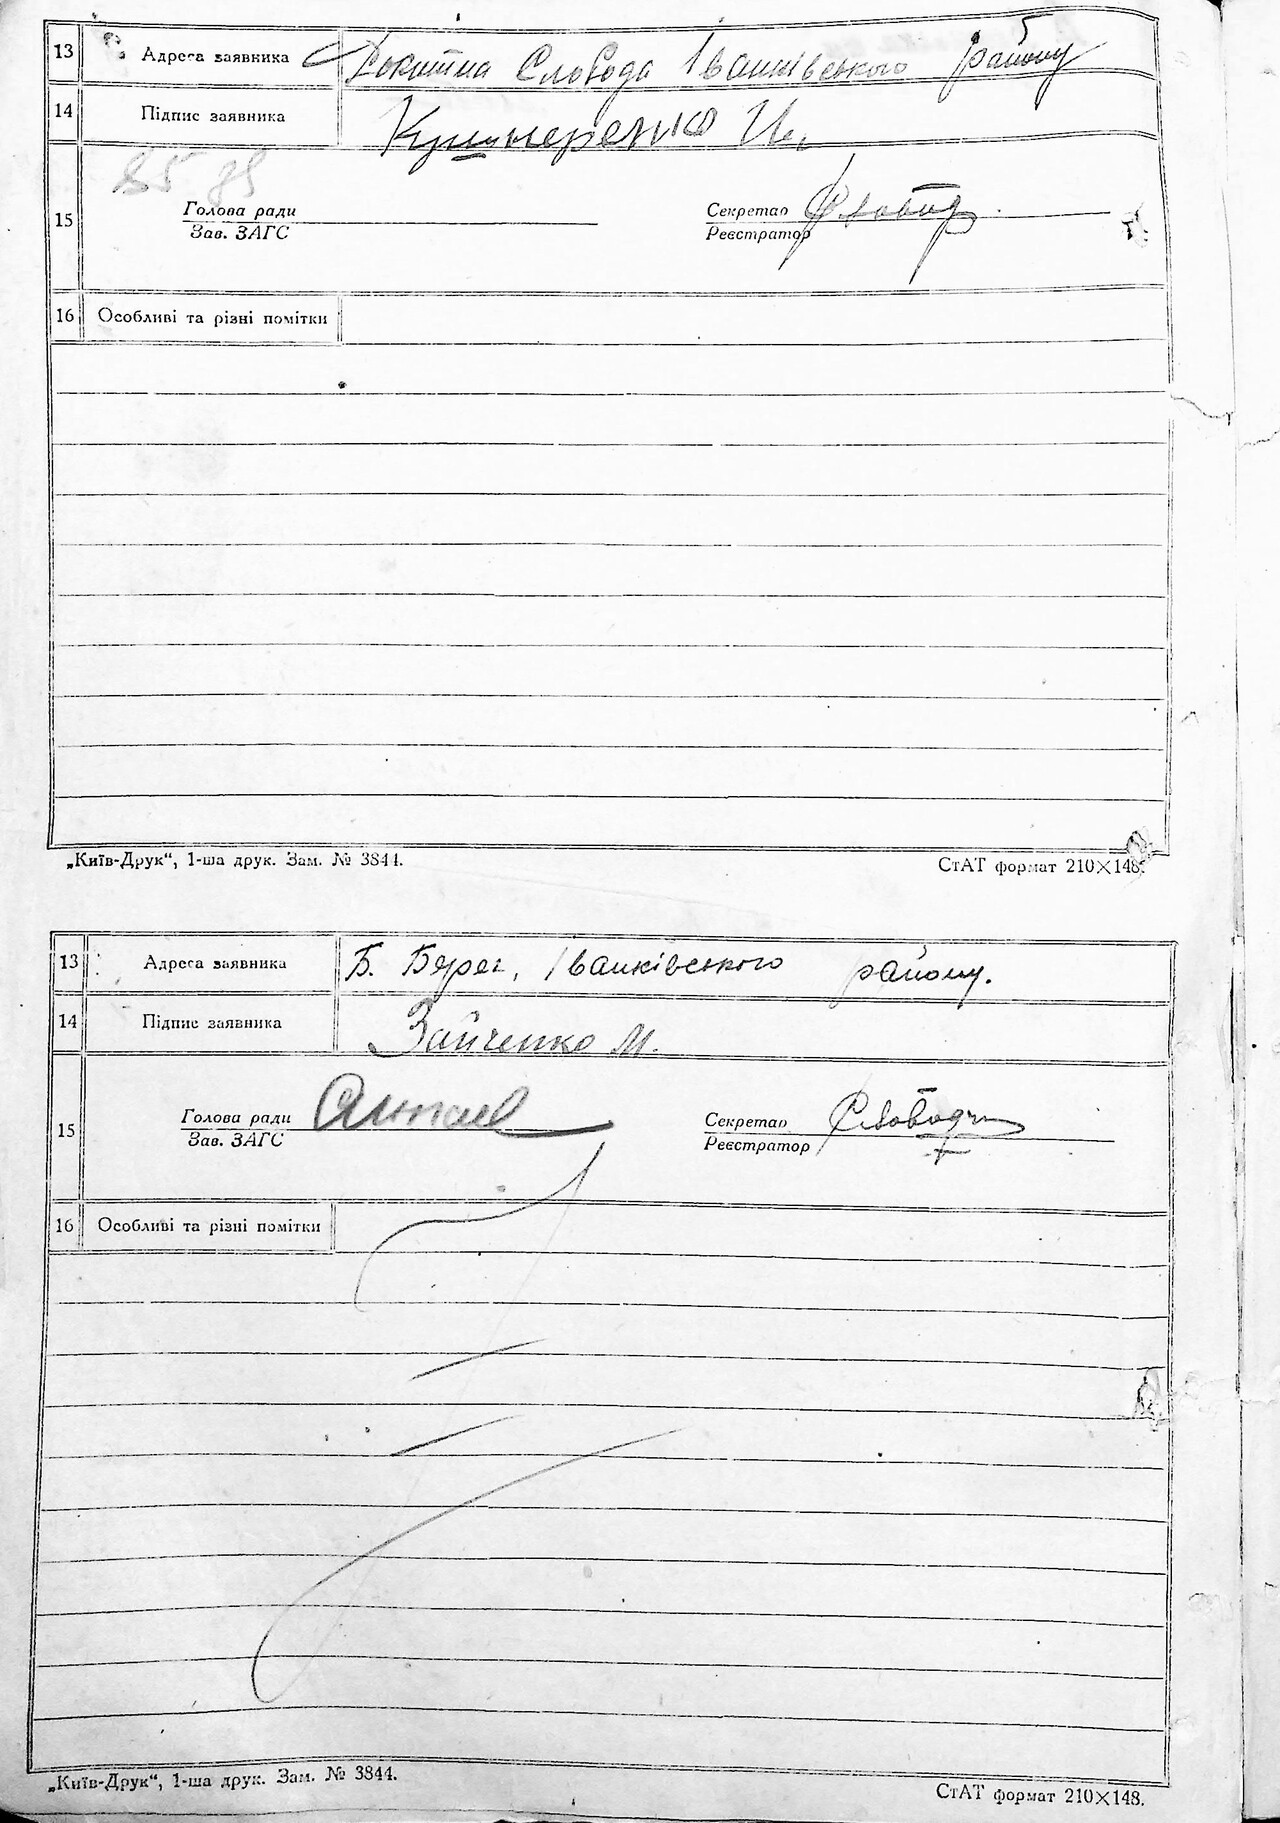 13 Адреса заявника Рокитна Слобода Іванківського району
14 Підпис заявника Кушнеренко И.
15 Голова ради Секретар
Зав. ЗАГС Реєстратор
16 Особливі та різні помітки
„Київ-Друк“, 1-ша друк. Зам. № 3844. СтАТ формат 210×148.
13 Адреса заявника Б. Берег, Іванківського району.
14 Підпис заявника Зайченко М.
15 Голова ради Секретар
Зав. ЗАГС Реєстратор
16 Особливі та різні помітки
„Київ-Друк“, 1-ша друк. Зам. № 3844. СтАТ формат 210×148.